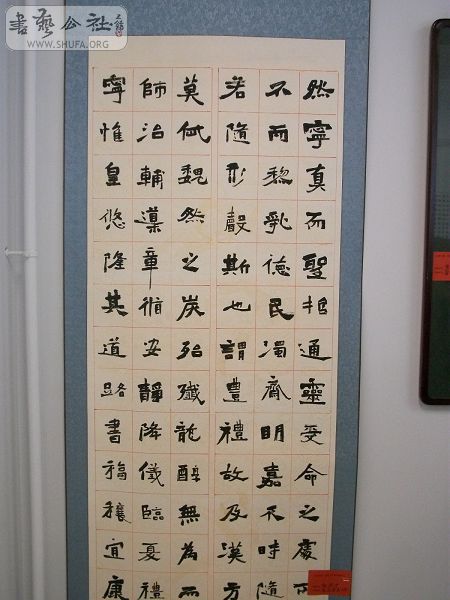 書藝公社
WWW.SHUFA.ORG
然寧真而聖哲通靈受命之處
不而黎乳德民濁齊明嘉不時隨
若隨形聲斯也謂豊禮故及漢方
莫魏然之炭殆殲龍醇無為而
師治輔導章循安靜降儀臨夏禮
寧惟皇悠隆其道路書福穰宜康